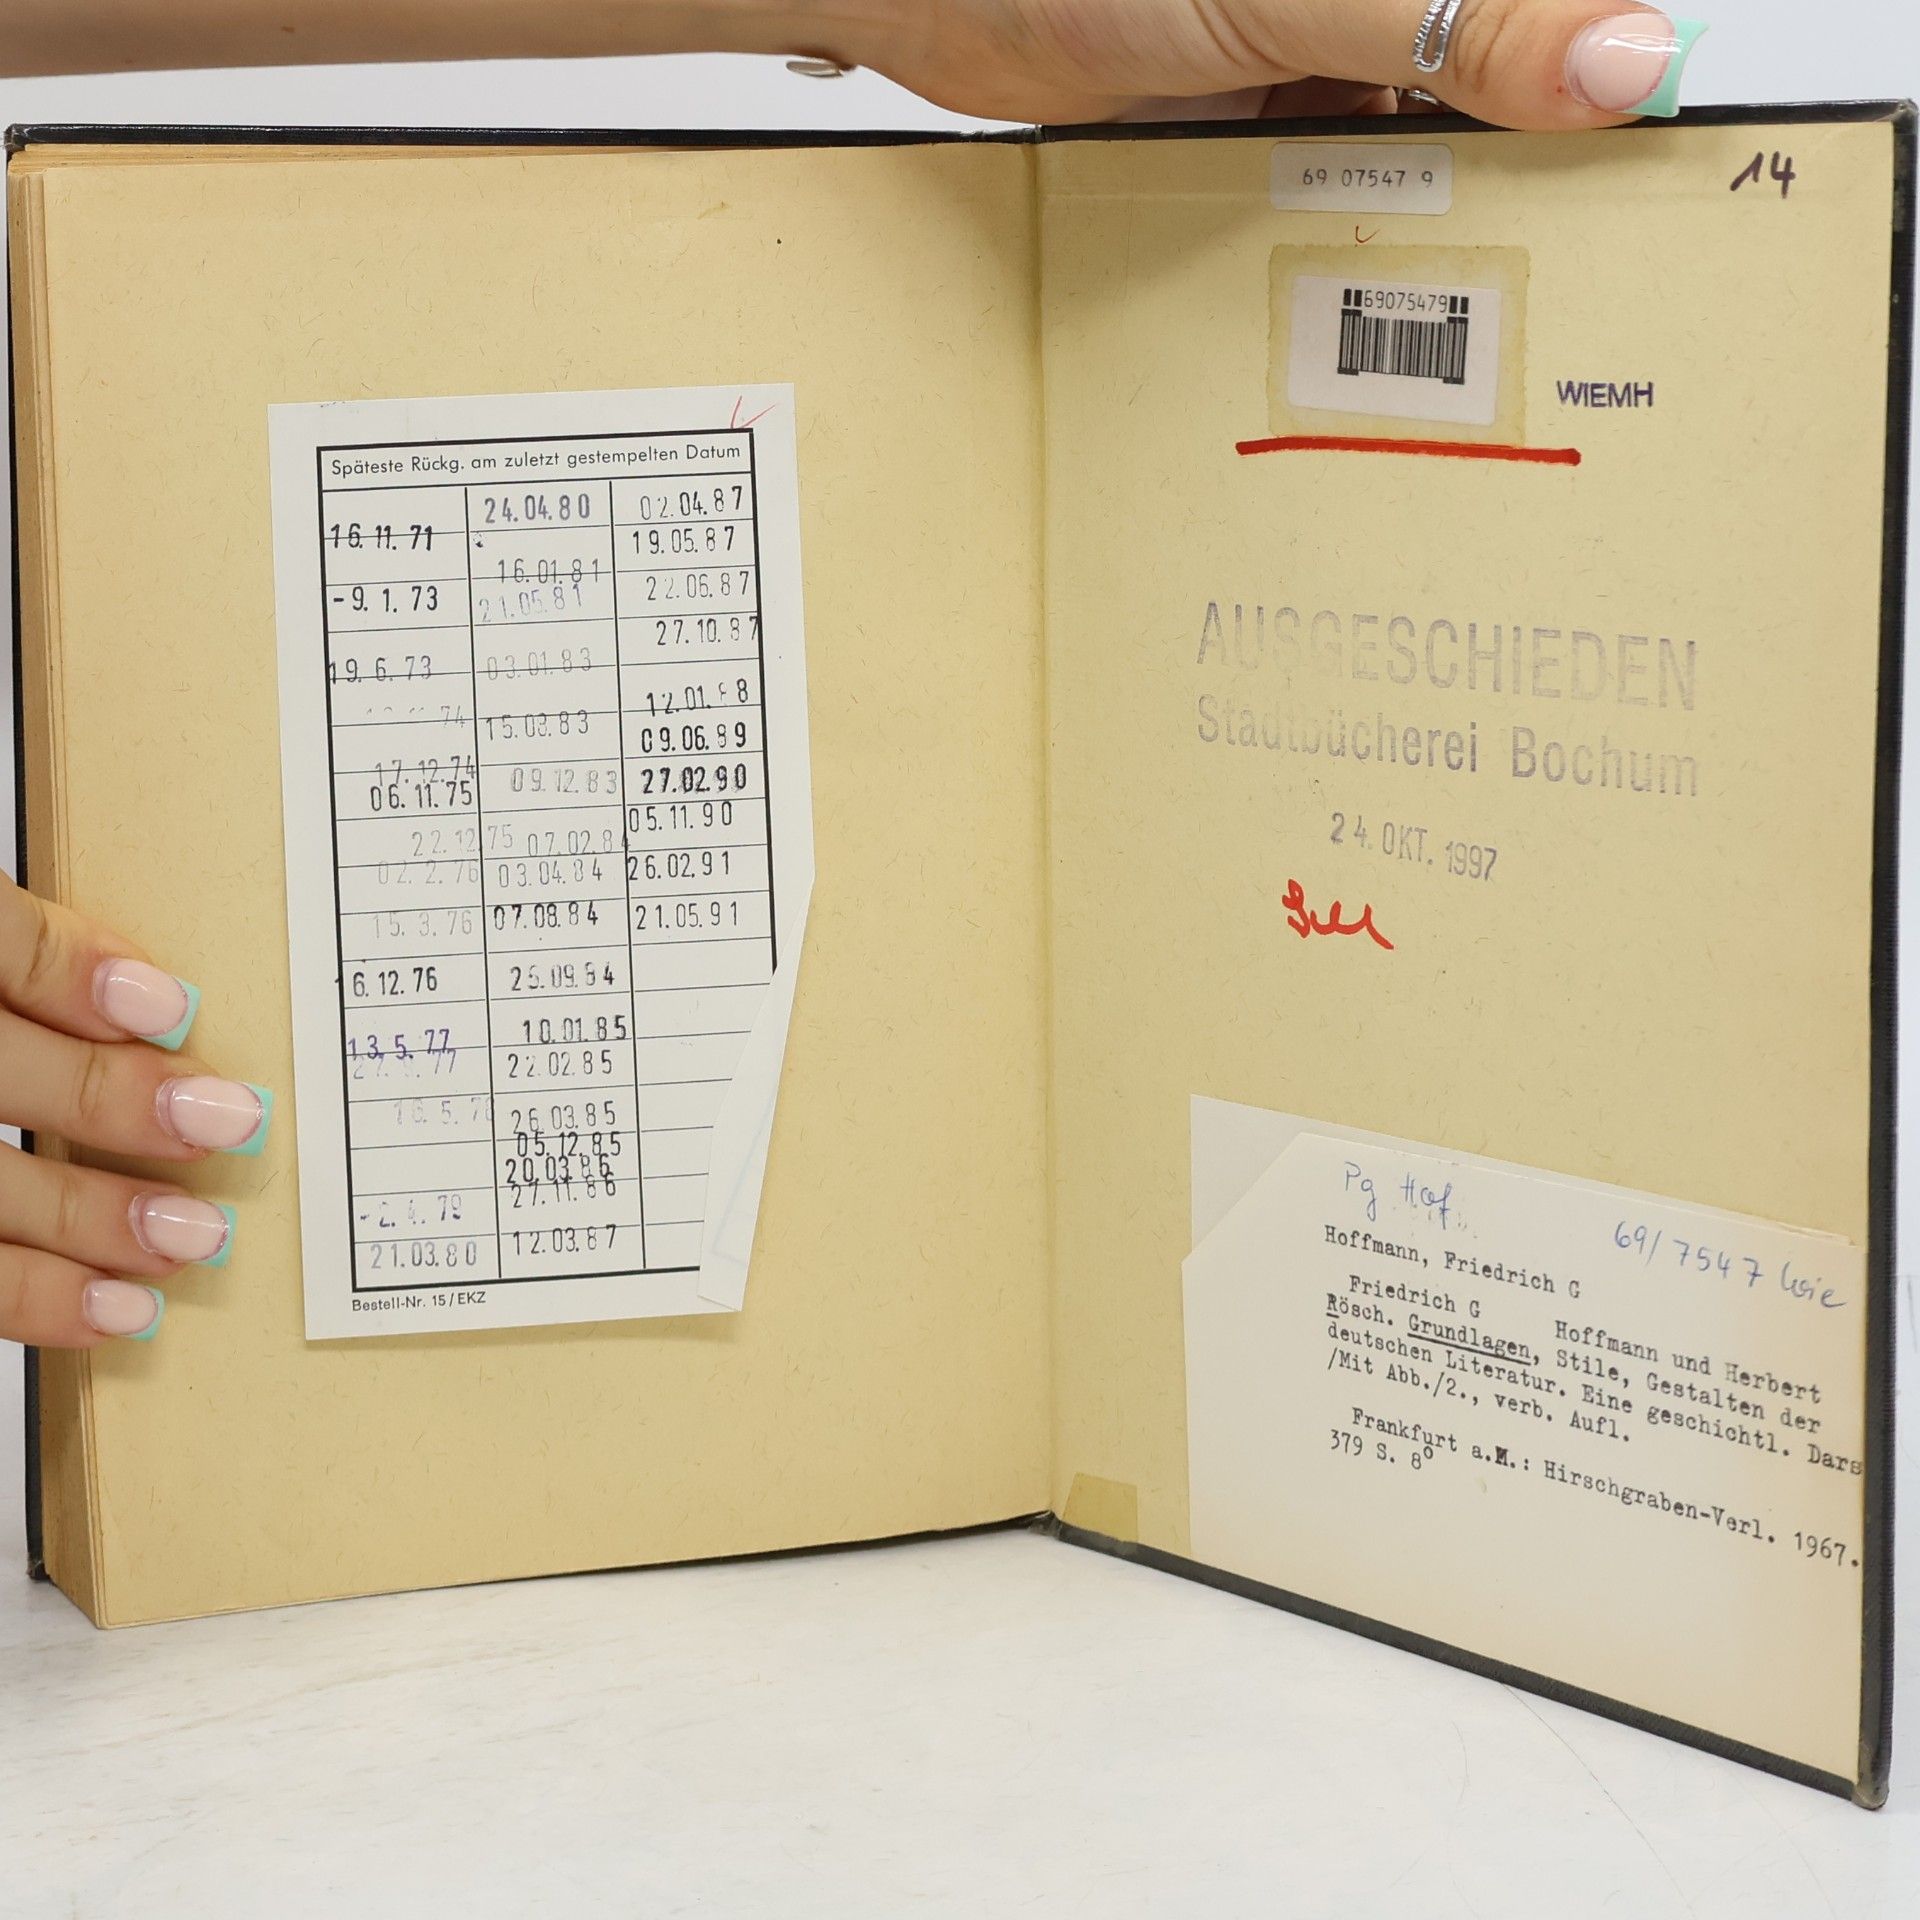 Späteste Rückg. am zuletzt gestempelten Datum
16. 11. 71
-9. 1. 73
19. 6. 73
74
17. 12. 74
06. 11. 75
22. 12 75
02. 2. 76
15. 3. 76
16. 12. 76
13. 5. 77
77
16. 5. 78
-2. 4. 79
21.03.80
24.04.80
16.01.81
21.05.81
03.01.83
15.03.83
09.12.83
07.02.84
03.04.84
07.08.84
25.09.84
10.01.85
22.02.85
26.03.85
05.12.85
20.03.86
27.11.86
12.03.87
02.04.87
19.05.87
22.06.87
27.10.87
12.01.88
09.06.89
27.02.90
05.11.90
26.02.91
21.05.91
Bestell-Nr. 15/EKZ
69 07547 9
14
69075479
WIEMH
AUSGESCHIEDEN
Stadtbücherei Bochum
24. OKT. 1997
Pg Hof
69/7547 Wie
Hoffmann, Friedrich G
Friedrich G Hoffmann und Herbert
Rösch. Grundlagen, Stile, Gestalten der
deutschen Literatur. Eine geschichtl. Dars
/Mit Abb./2., verb. Aufl.
Frankfurt a.M.: Hirschgraben-Verl. 1967.
379 S. 8°